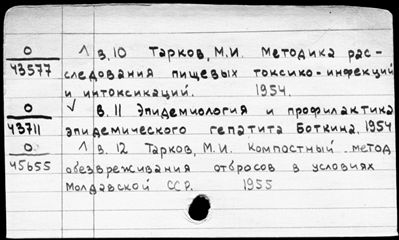 0 ^ в. 10 Тарков, М.И. Методика рас-
43577 следования пищевых токсико-инфекций
и интоксикаций. 1954.
0 √ в. 11 Эпидемиология и профилактика
43711 эпидемического гепатита Боткина. 1954
0 ^ в. 12 Тарков, М.И. Компостный метод
45655 обезвреживания отбросов в условиях
Молдавской ССР. 1955